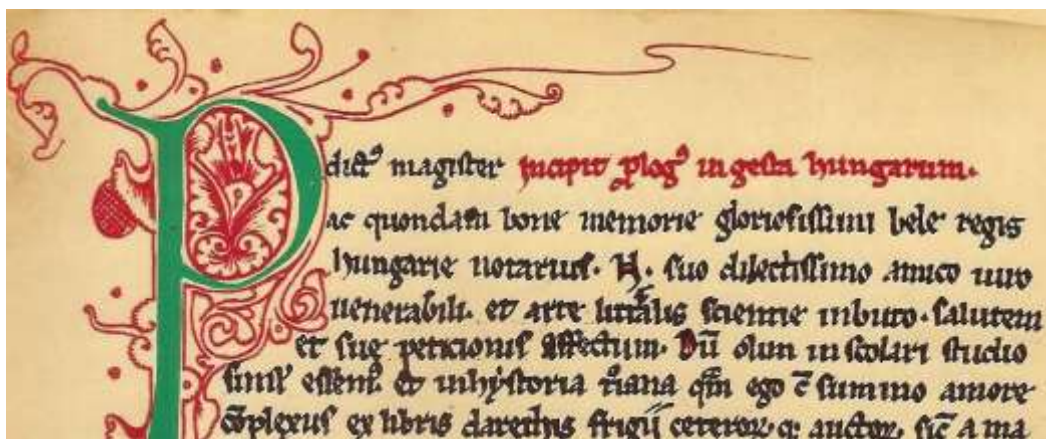 P dict᷒ magister Incipit ꝓlog᷒ in gesta hungarum.
ac quondam bone memorie gloriosissimi bele regis
hungarie notarius. N. suo dilectissimo amico uiro
uenerabili. et arte litt̃alis scientie inbuto. salutem
et sue peticionis effectum. Dũ olim in scolari studio
simĺ essem᷒ et in hystoria t̊iana qm̃ ego c̃ summo amore
cõplexus ex libris darethis frigii ceteroꝝ. qꝫ auctoꝝ. sic̃ a ma